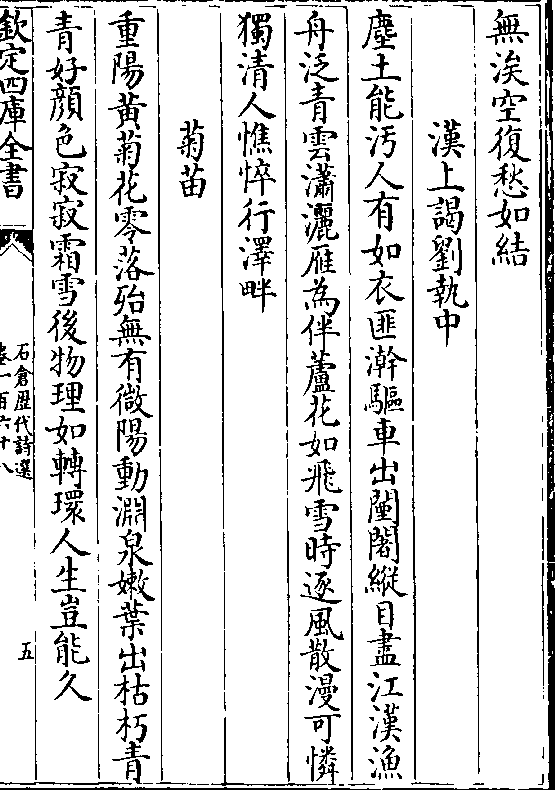 無涘空復愁如結
漢上謁劉執中
塵土能汚人有如衣匪澣驅車出闉闍縱目盡江漢漁
舟泛青雲瀟灑雁為伴蘆花如飛雪時逐風散漫可憐
獨清人憔悴行澤畔
菊苗
重陽黃菊花零落殆無有微陽動淵泉嫩葉出枯朽青
青好顔色寂寂霜雪後物理如轉環人生豈能久
欽定四庫全書
石倉歷代詩選
卷一百六十八
五